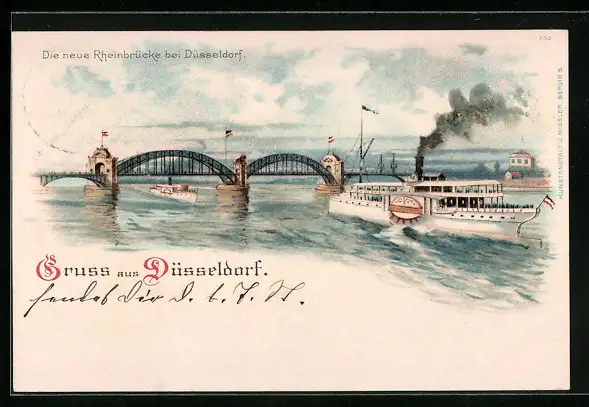 Die neue Rheinbrücke bei Düsseldorf.
KUNSTANSTALT J. MIESLER, BERLIN S.
Gruss aus Düsseldorf.
sendet Dir D. b. F. St.